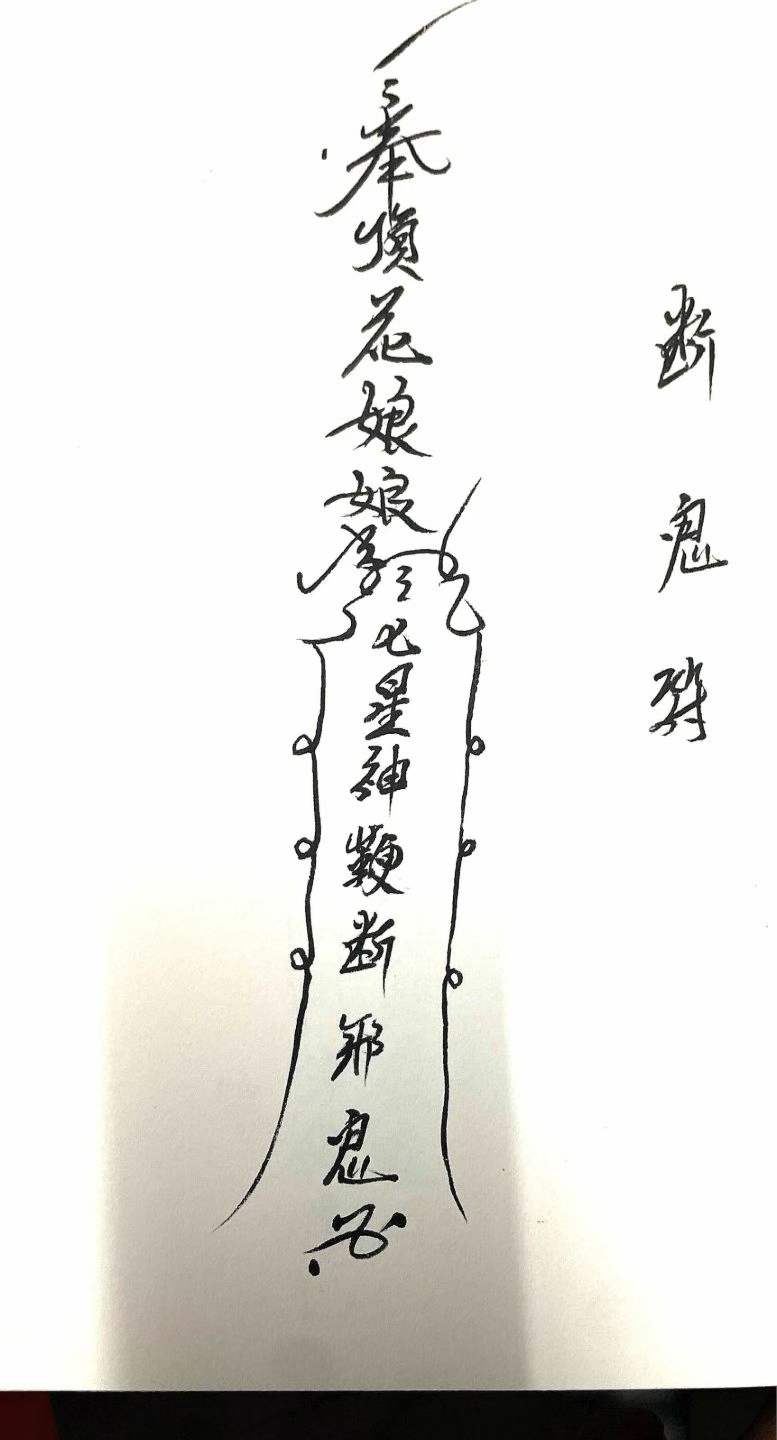 斷鬼符
奉 花娘娘 七星神鞭斷邪鬼